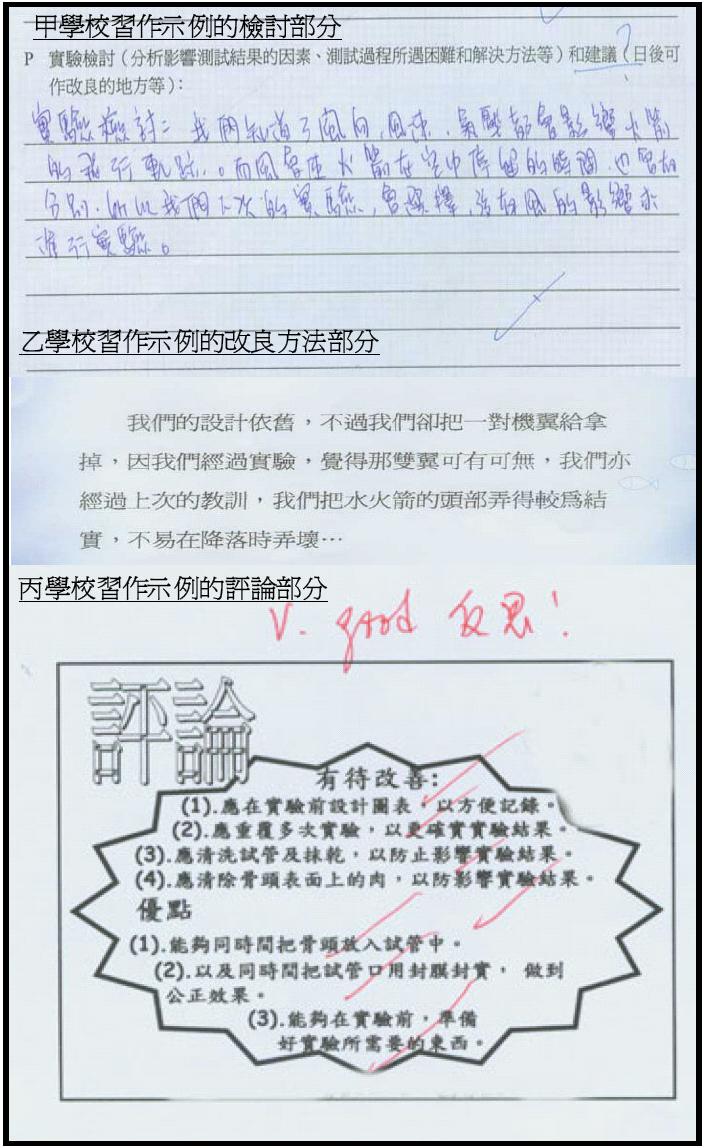 甲學校習作示例的檢討部分
P 實驗檢討（分析影響測試結果的因素、測試過程所遇困難和解決方法等）和建議（日後可
作改良的地方等）：
?
實驗檢討：我們知道了風向，風速，氣壓都會影響火箭
的飛行軌跡。而風會在火箭在空中停留的時間，也會有
分別，所以我們下次的實驗，會選擇，沒有風的影響來
進行實驗。
乙學校習作示例的改良方法部分
我們的設計依舊，不過我們卻把一對機翼給拿
掉，因我們經過實驗，覺得那雙翼可有可無，我們亦
經過上次的教訓，我們把水火箭的頭部弄得較爲結
實，不易在降落時弄壞…
丙學校習作示例的評論部分
V. good 反思！
評論
有待改善:
(1).應在實驗前設計圖表，以方便記錄。
(2).應重覆多次實驗，以更確實實驗結果。
(3).應清洗試管及抹乾，以防止影響實驗結果。
(4).應清除骨頭表面上的肉，以防影響實驗結果。
優點
(1).能夠同時間把骨頭放入試管中。
(2).以及同時間把試管口用封膜封實， 做到
公正效果。
(3).能夠在實驗前，準備
好實驗所需要的東西。